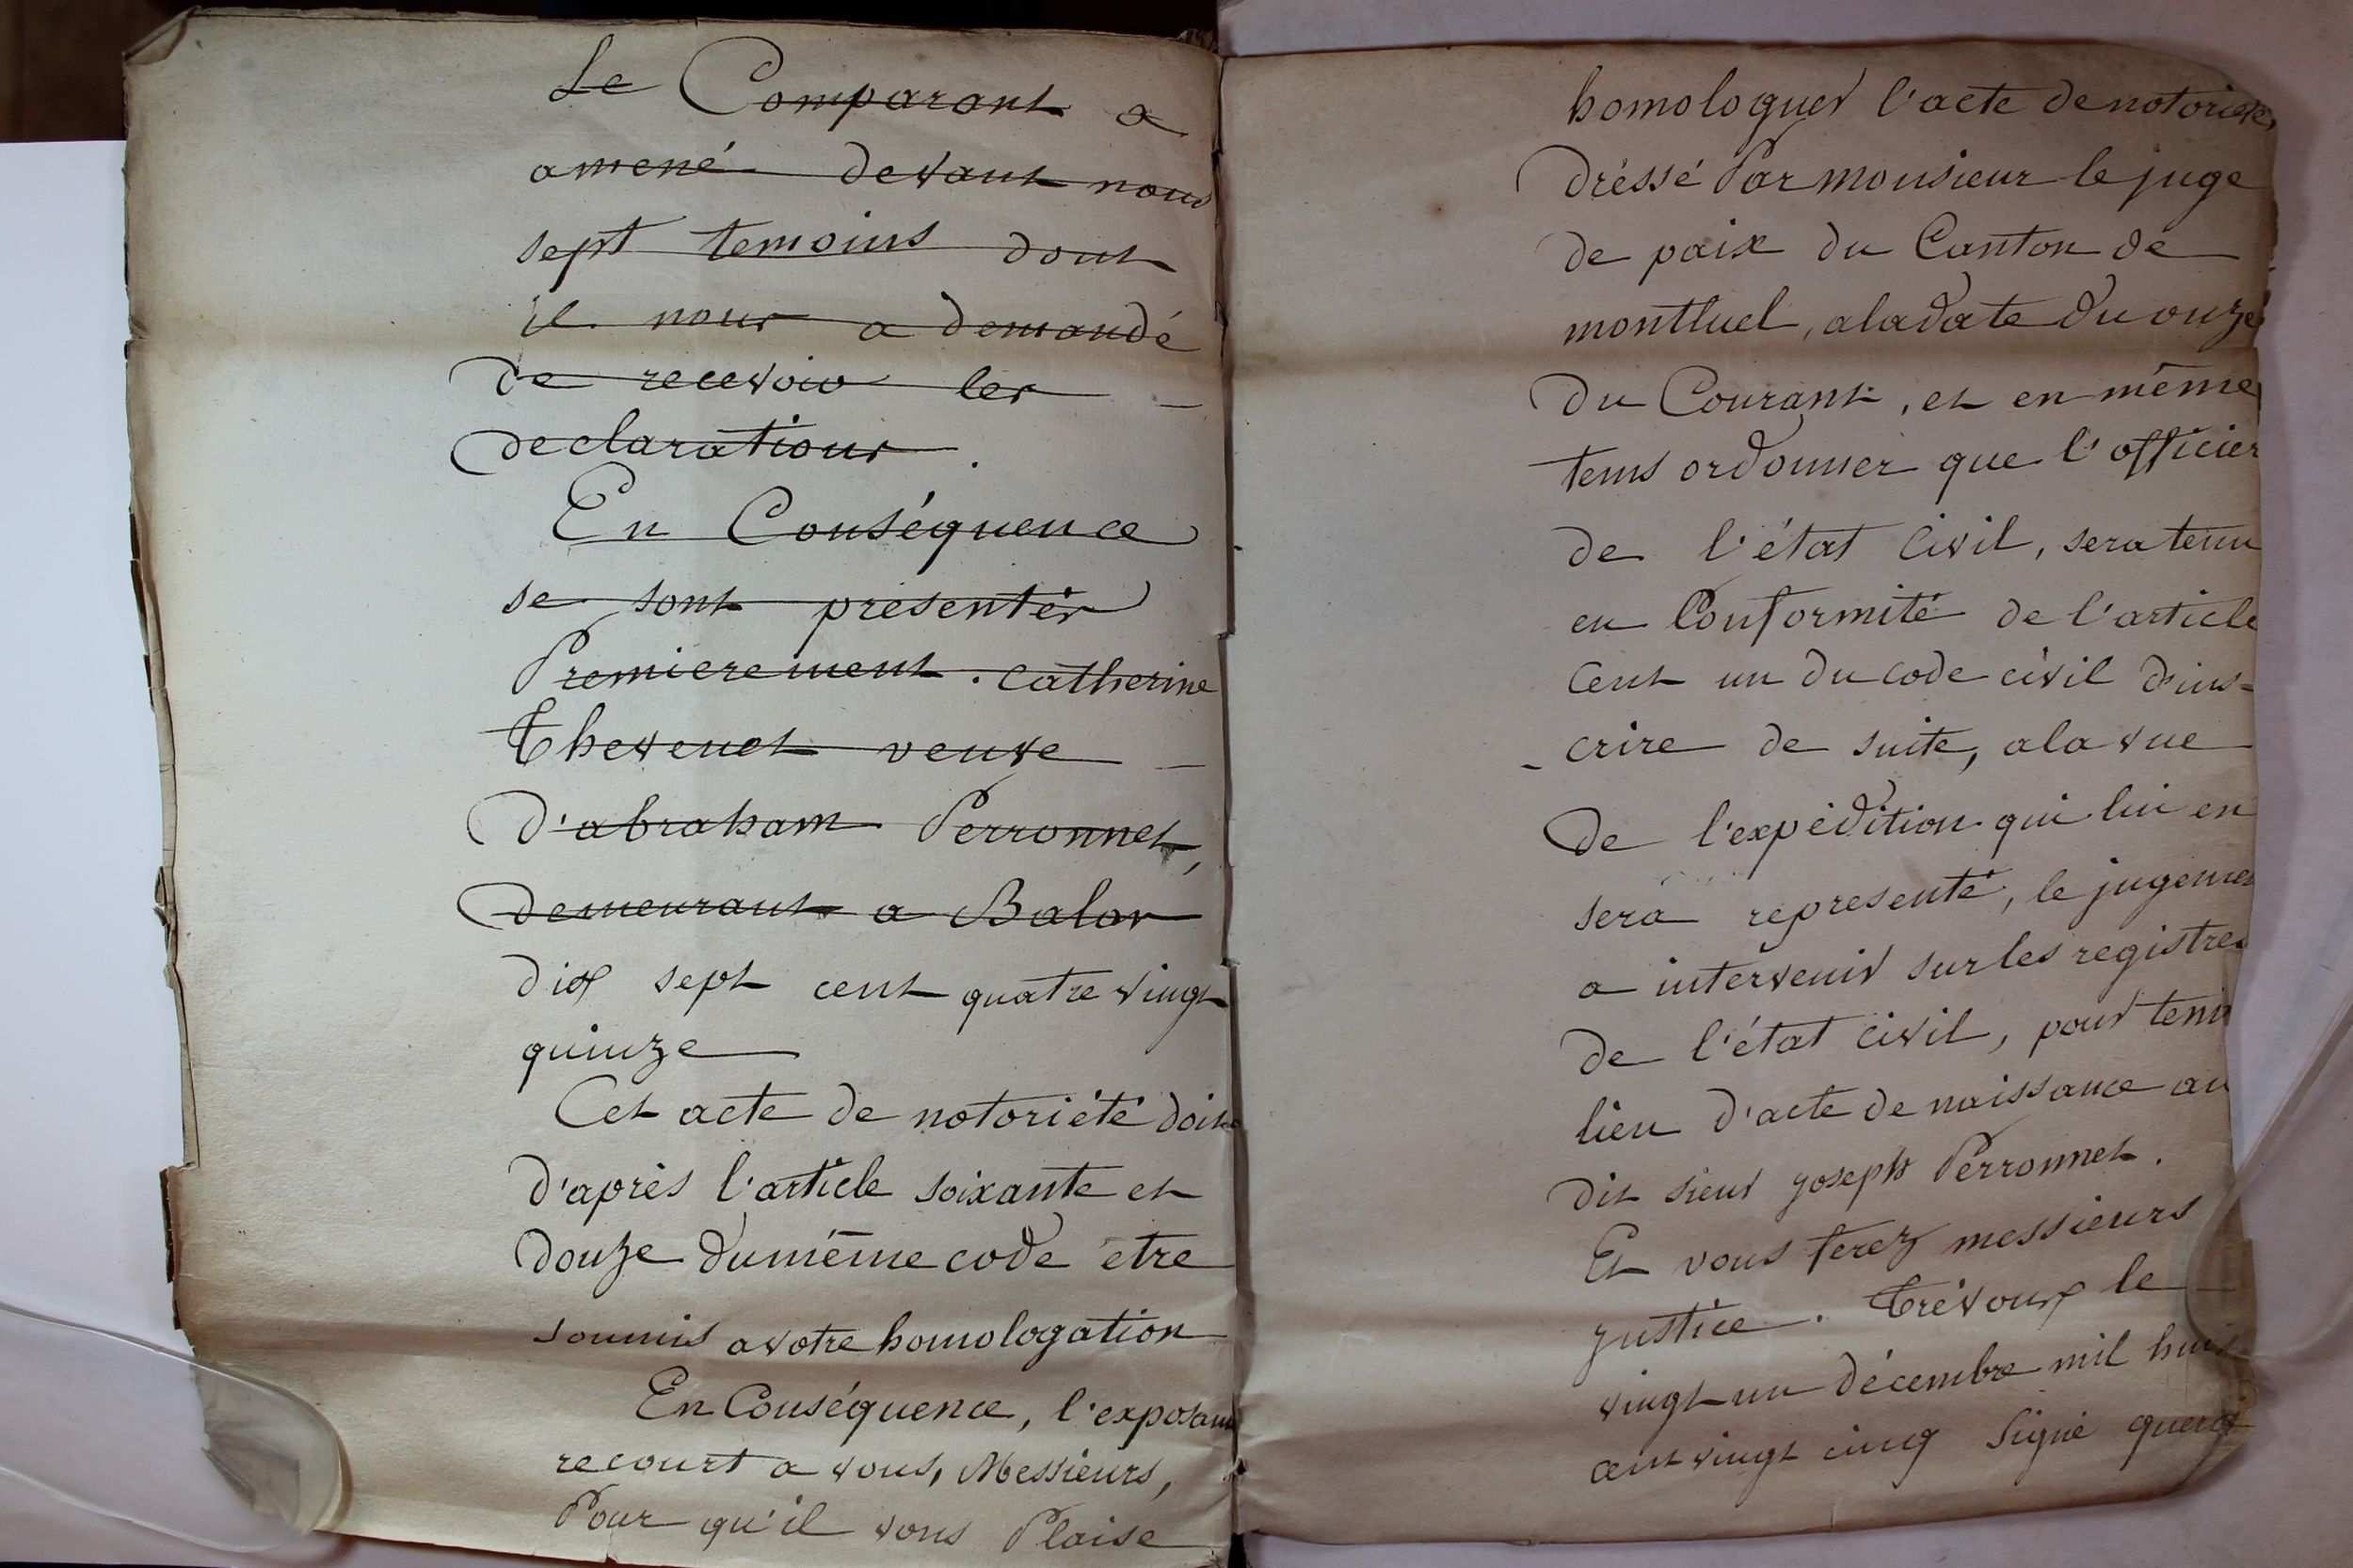 Le Comparant a
amené devant nous
sept temoins dont
il nous a demandé
de recevoir les
declarations.
En Conséquence
se sont presentés
Premierement. Catherine
Thevenet veuve
d'abraham Perronnet,
demeurant a Balan
dix sept cent quatre vingt
quinze
Cet acte de notoriété doit
d'après l'article soixante et
douze du même code etre
soumis a votre homologation
En Conséquence, l'exposant
recourt a vous, Messieurs,
Pour qu'il vous Plaise
homologuer l'acte de notorieté,
dréssé Par monsieur le juge
de paix du Canton de
montluel, a la date du onze
du Courant, et en même
tems ordonner que l'officier
de l'état Civil, sera tenu
en Conformité de l'article
Cent un du code civil d'ins-
-crire de suite, a la vue
de l'expédition qui lui en
sera representé, le jugement
a intervenir sur les registres
de l'état civil, pour tenir
lieu d'acte de naissance au
dit sieur joseph Perronnet.
Et vous ferez messieurs
justice. Trévoux le
vingt un décembre mil huit
cent vingt cinq Signé